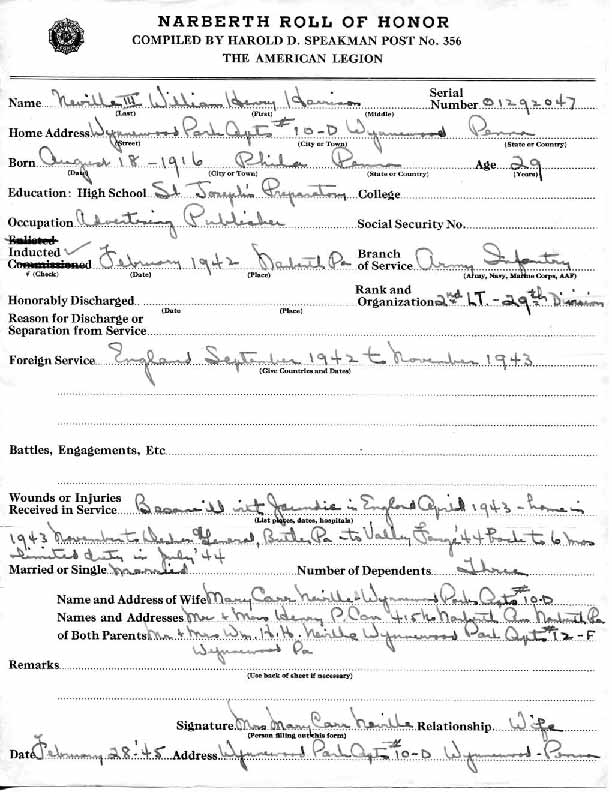 NARBERTH ROLL OF HONOR
COMPILED BY HAROLD D. SPEAKMAN POST No. 356
THE AMERICAN LEGION
Name Neville III William Henry Harrison Serial Number 01292047
(Last) (First) (Middle)
Home Address Wynnewood Park Apts #10-D Wynnewood Penna
(Street) (City or Town) (State or Country)
Born August 18-1916 Phila Penna Age 29
(Date) (City or Town) (State or Country) (Years)
Education: High School St Joseph's Preparatory College
Occupation Advertising Publisher Social Security No.
Enlisted
Inducted ✓ February 1942 Narberth Pa Branch of Service Army Infantry
Commissioned
(Check) (Date) (Place) (Army, Navy, Marine Corps, AAF)
Honorably Discharged Rank and Organization 2nd LT. - 29th Division
(Date (Place)
Reason for Discharge or
Separation from Service
Foreign Service England September 1942 to November 1943
(Give Countries and Dates)
Battles, Engagements, Etc.
Wounds or Injuries
Received in Service Became ill with Jaundice in England April 1943 - home in
(List places, dates, hospitals)
1943 November to General, Butler, Pa to Valley Forge '44 Back to 6 mos
limited duty in July '44
Married or Single married Number of Dependents Three
Name and Address of Wife Mary Carr Neville Wynnewood Park Apts #10-D
Names and Addresses Mr & Mrs Henry P. Carr 415 N Narberth Ave Narberth Pa
of Both Parents Mr & Mrs Wm. H.H. Neville Wynnewood Park Apts #12-F
Wynnewood Pa
Remarks
(Use back of sheet if necessary)
Signature Mrs Mary Carr Neville Relationship Wife
(Person filling out this form)
Date February 28 '45 Address Wynnewood Park Apts #10-D Wynnewood-Penna